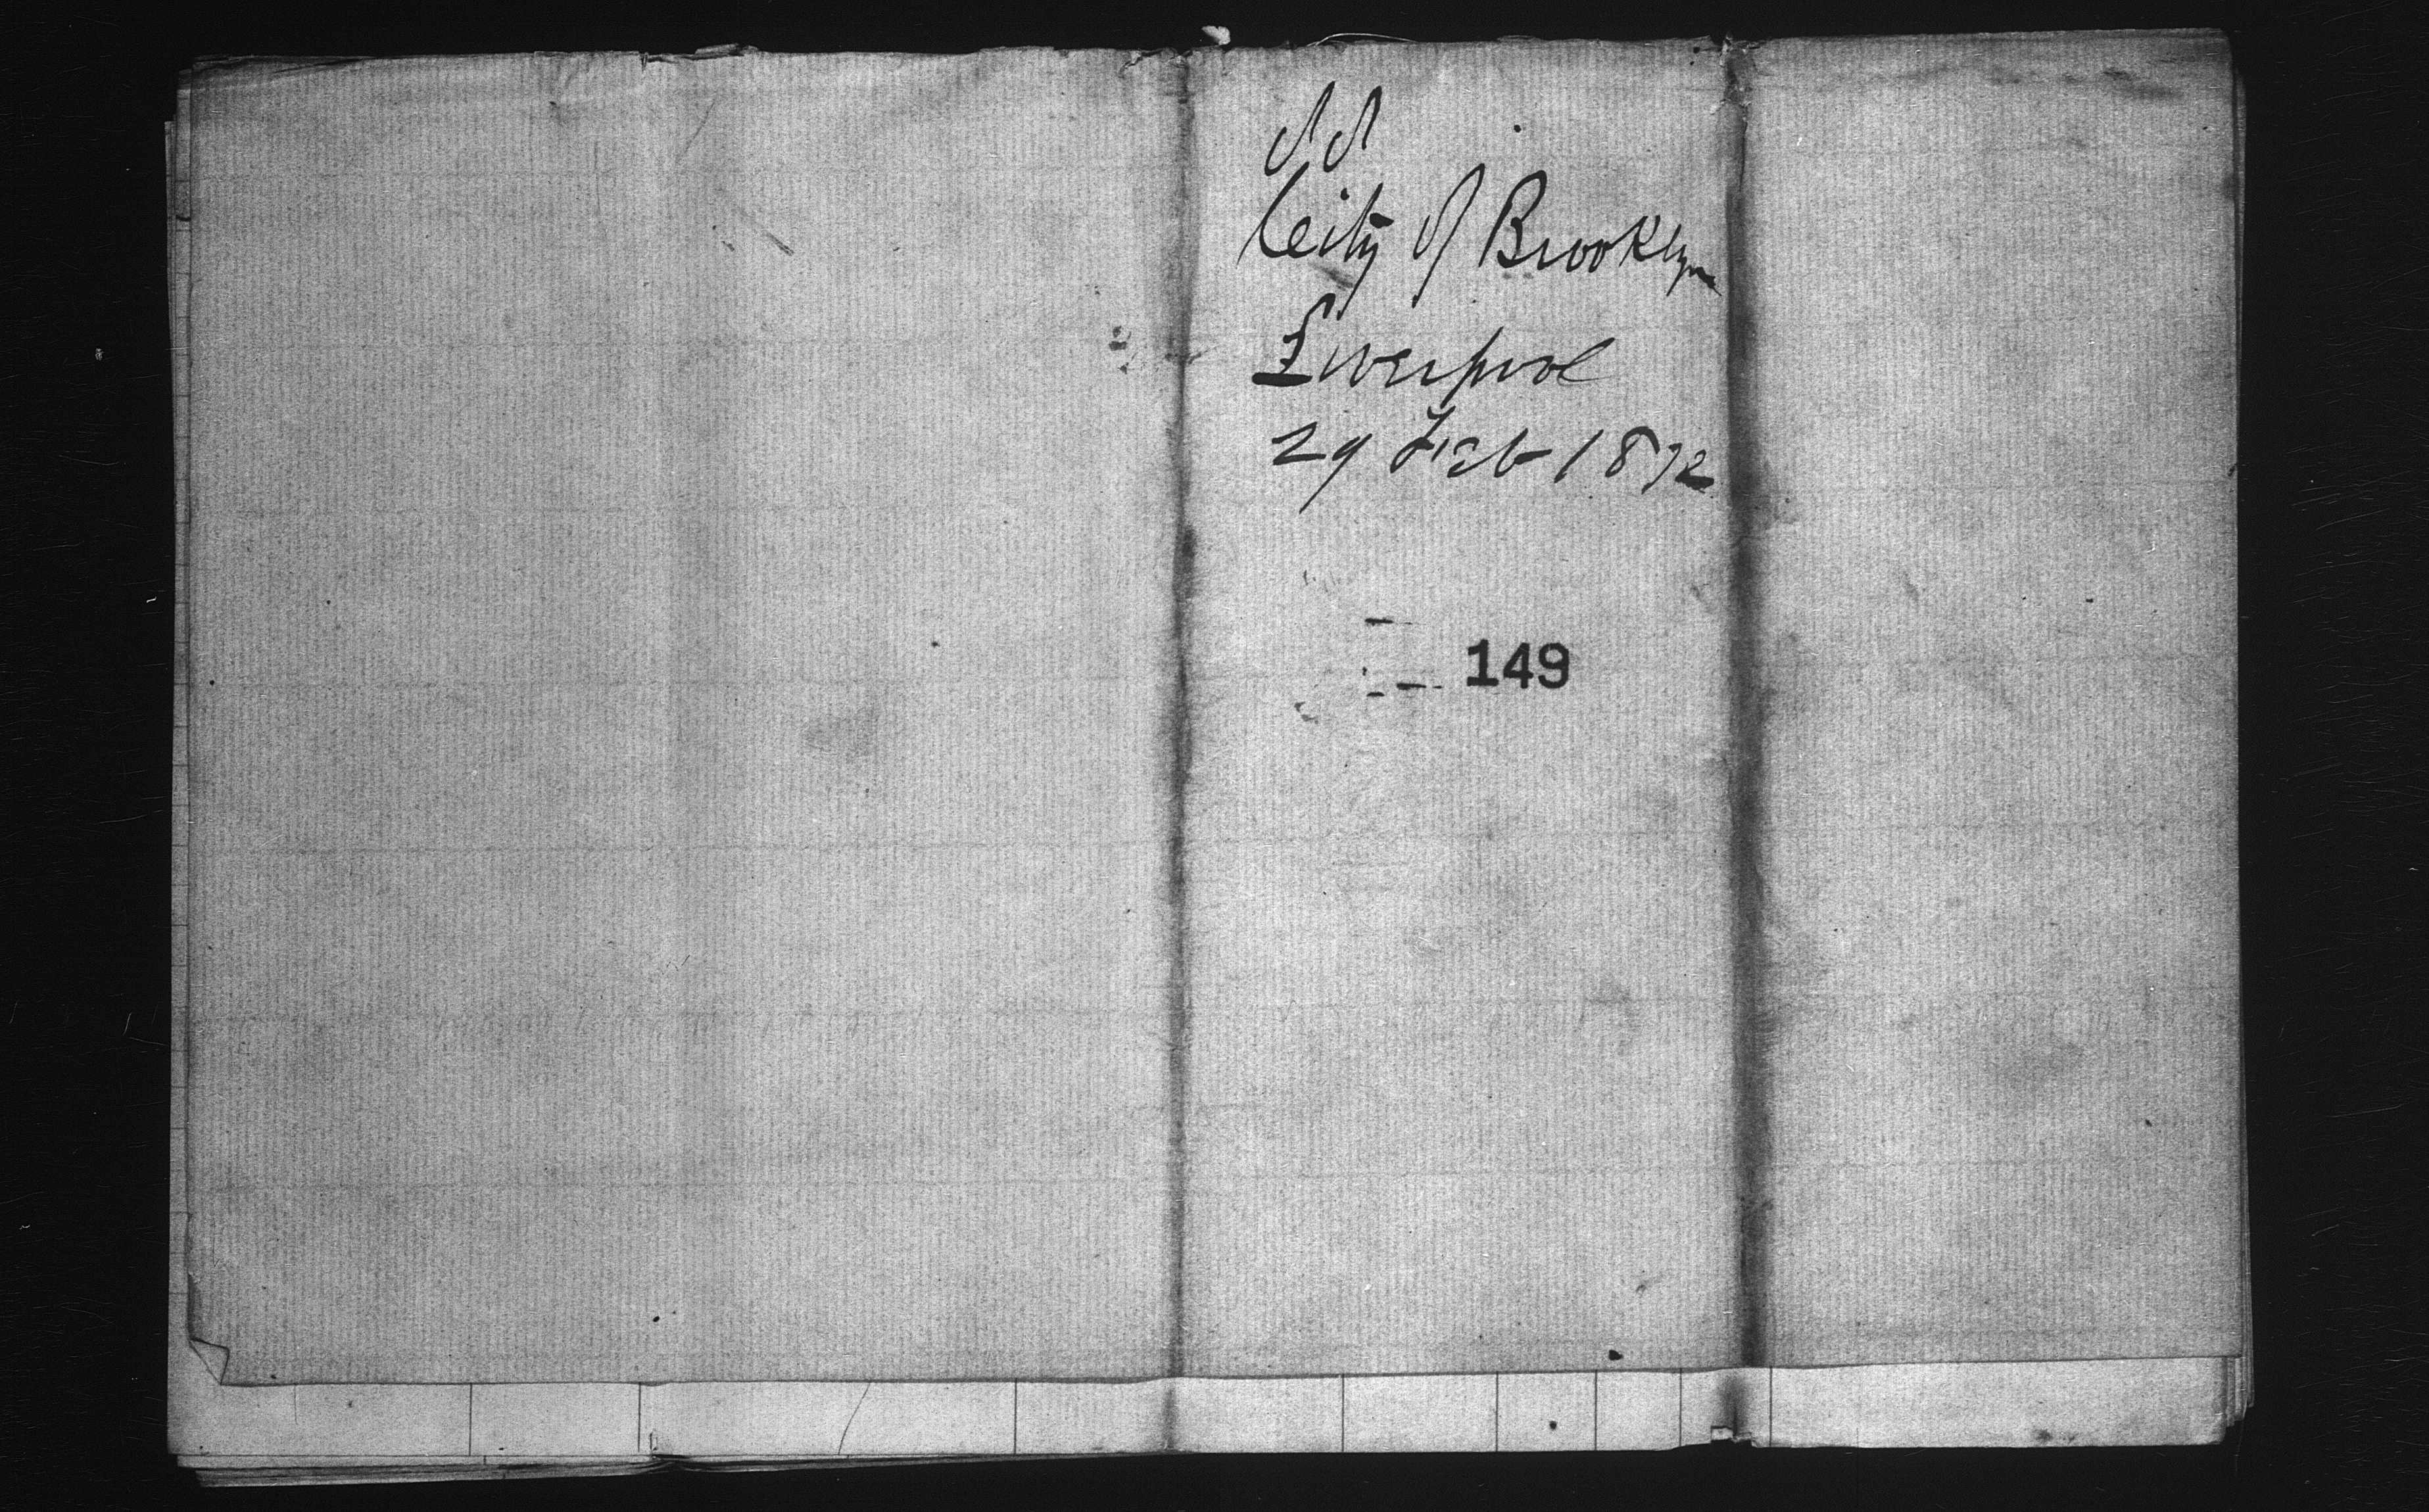 SS
City of Brooklyn
Liverpool
29 Feb 1872
149